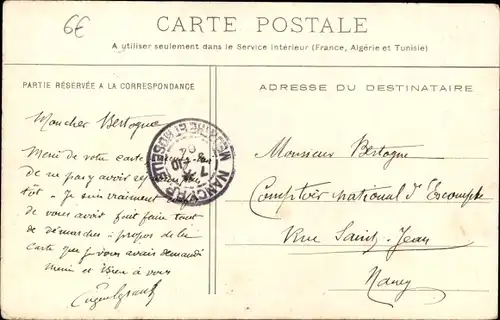 6€
CARTE POSTALE
A utiliser seulement dans le Service Intérieur (France, Algérie et Tunisie)
PARTIE RÉSERVÉE A LA CORRESPONDANCE
ADRESSE DU DESTINATAIRE
Mon cher Bertogne
Merci de votre carte
de ne pas y avoir
tôt. Je suis vraiment
de vous avoir fait faire tant
de démarches à propos de la
carte que je vous avais demandé
Merci et bien à vous
NANCY
MEURTHE ET MOSELLE
Monsieur Bertogne
Comptoir National d'Escompte
Rue Saint-Jean
Nancy